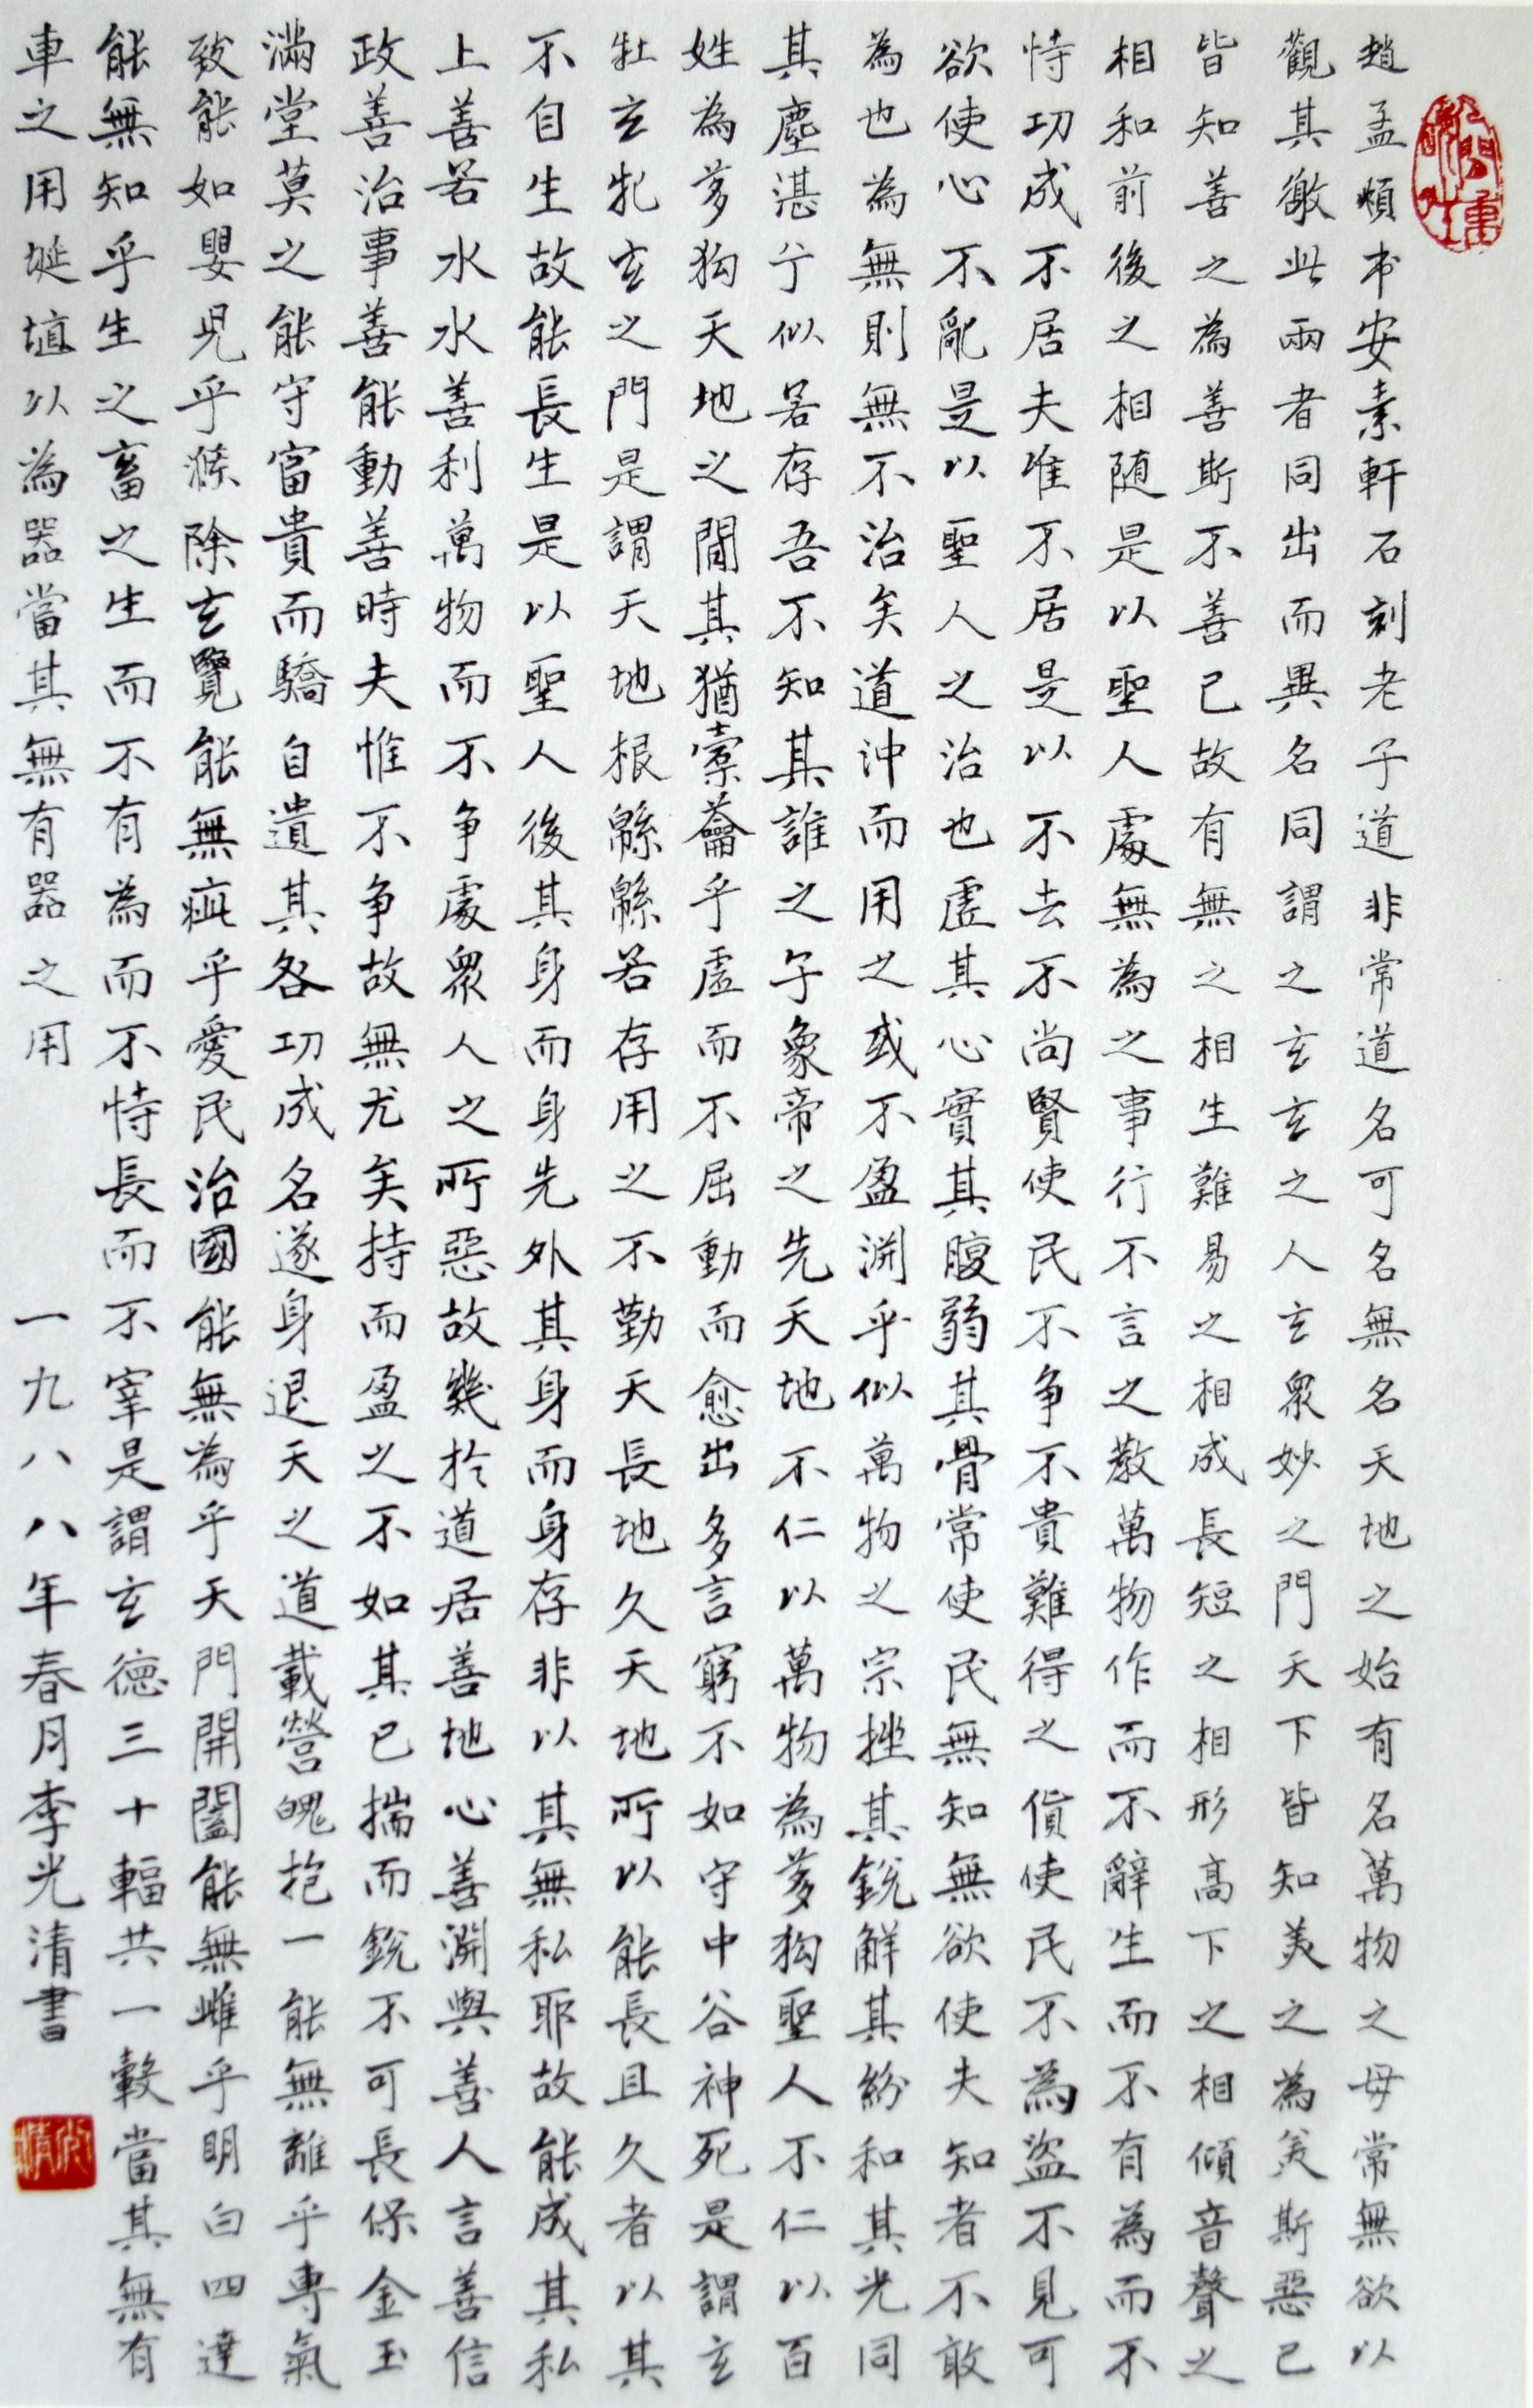 趙孟頫本安素軒石刻老子道非常道名可名無名天地之始有名萬物之母常無欲以
觀其徼此兩者同出而異名同謂之玄玄之人玄眾妙之門天下皆知美之為美斯惡已
皆知善之為善斯不善已故有無之相生難易之相成長短之相形高下之相傾音聲之
相和前後之相随是以聖人處無為之事行不言之教萬物作而不辭生而不有為而不
恃功成不居夫惟不居是以不去不尚賢使民不争不貴難得之貨使民不為盜不見可
欲使心不亂是以聖人之治也虛其心實其腹弱其骨常使民無知無欲使夫知者不敢
為也為無則無不治矣道沖而用之或不盈淵乎似萬物之宗挫其銳解其紛和其光同
其塵湛兮似若存吾不知其誰之子象帝之先天地不仁以萬物為芻狗聖人不仁以百
姓為芻狗天地之間其猶橐籥乎虛而不屈動而愈出多言窮不如守中谷神死是謂玄
牡玄牝玄之門是謂天地根緜緜若存用之不勤天長地久天地所以能長且久者以其
不自生故能長生是以聖人後其身而身先外其身而身存非以其無私耶故能成其私
上善若水水善利萬物而不争處眾人之所惡故幾於道居善地心善淵與善人言善信
政善治事善能動善時夫惟不争故無尤矣持而盈之不如其已揣而銳不可長保金玉
滿堂莫之能守富貴而驕自遺其各功成名遂身退天之道載營魄抱一能無離乎專氣
致能如嬰兒乎滌除玄覽能無疵乎愛民治國能無為乎天門開闔能無雌乎明白四達
能無知乎生之畜之生而不有為而不恃長而不宰是謂玄德三十輻共一轂當其無有
車之用埏埴以為器當其無有器之用 一九八八年春月李光清書
光清